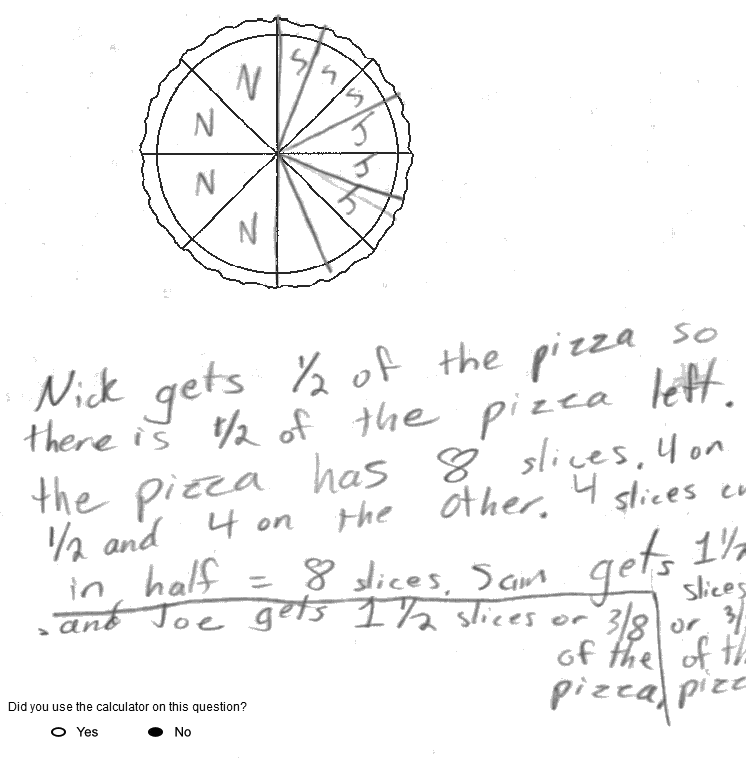 N S S
N S
J
N J
J
N
Nick gets 1/2 of the pizza so
there is 1/2 of the pizza left.
the pizza has 8 slices. 4 on
1/2 and 4 on the other. 4 slices
in half = 8 slices. Sam gets 1 1/2
slices
and Joe gets 1 1/2 slices or 3/8 or
of the of
pizza,
Did you use the calculator on this question?
Yes No